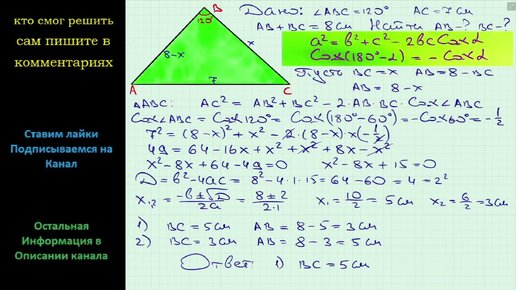 кто смог решить
сам пишите в
комментариях
Ставим лайки
Подписываемся на
Канал
Остальная
Информация в
Описании канала
B
120°
8-x
x
A
7
C
Дано: ∠ABC=120° AC=7см
AB+BC=8см Найти AB-? BC-?
a²=b²+c²-2bc Cosα
Cos(180°-α)=-Cosα
Пусть BC=x AB=8-BC
AB=8-x
△ABC: AC²=AB²+BC²-2·AB·BC·Cos∠ABC
Cos∠ABC=Cos120°=Cos(180°-60°)=-Cos60°=-1/2
7²=(8-x)²+x²-2·(8-x)·x(-1/2)
49=64-16x+x²+x²+8x-x²
x²-8x+64-49=0 x²-8x+15=0
D=b²-4ac=8²-4·1·15=64-60=4=2²
x₁,₂=(-b±√D)/2a=(8±2)/2·1 x₁=10/2=5см x₂=6/2=3см
1) BC=5см AB=8-5=3см
2) BC=3см AB=8-3=5см
Ответ: 1) BC=5см